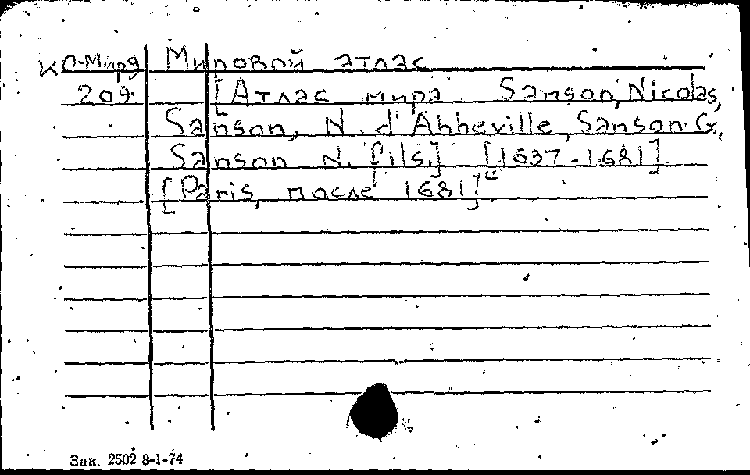 КО-Мира Мировой атлас
209 [Атлас мира Sanson, Nicolas,
Sanson, N. d'Abbeville, Sanson G.,
Sanson N. fils.] [1637-1681]
[Paris, после 1681]
Зак. 2502 8-1-74